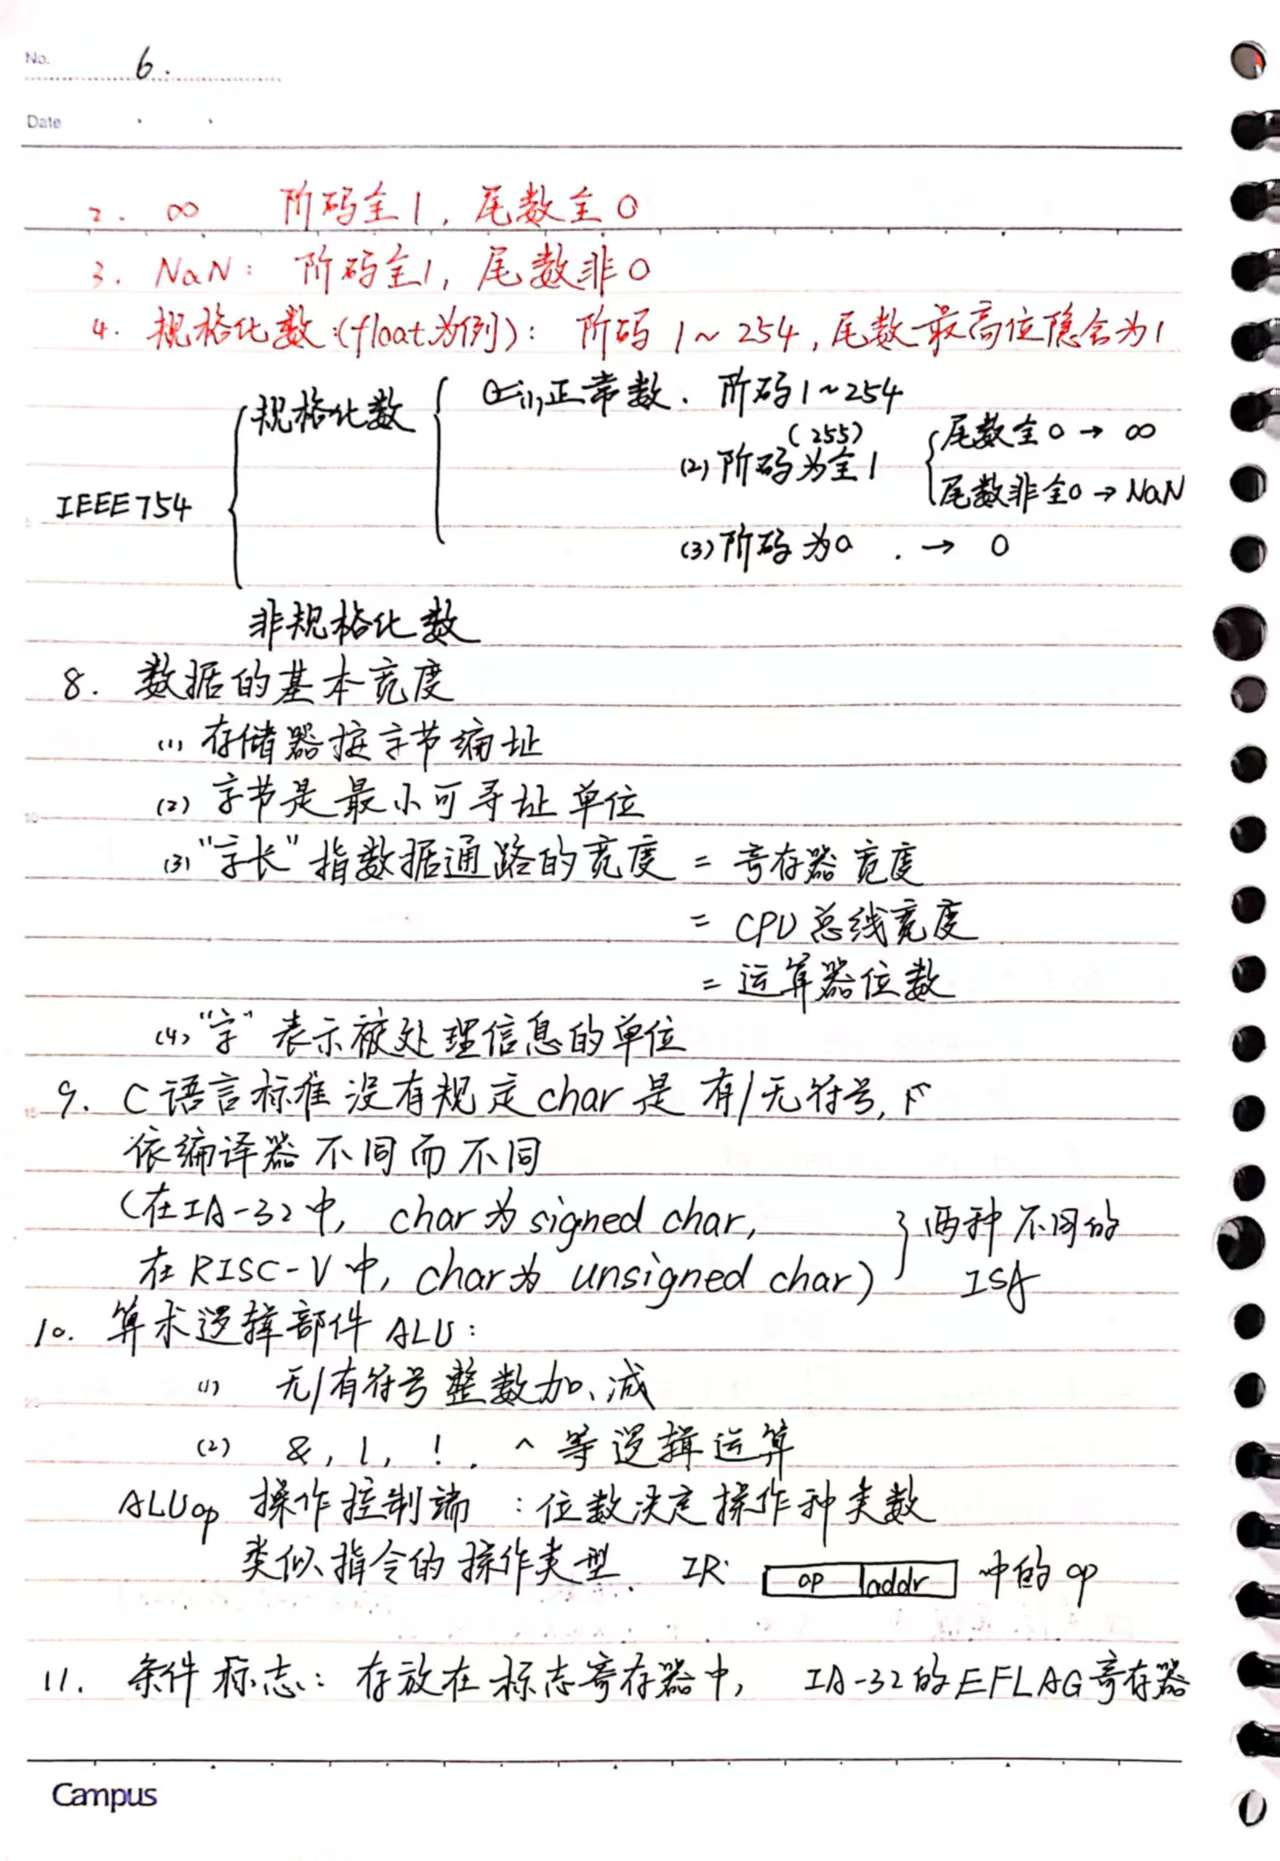 No. 6.
Date . .
2. ∞ 阶码全1, 尾数全0
3. NaN: 阶码全1, 尾数非0
4. 规格化数:(float为例): 阶码 1~254, 尾数最高位隐含为1
规格化数 (1)正常数. 阶码1~254
(255)
(2)阶码为全1 尾数全0→∞
尾数非全0→NaN
IEEE754
(3)阶码为0 . → 0
非规格化数
8. 数据的基本宽度
(1) 存储器按字节编址
(2) 字节是最小可寻址单位
(3)"字长"指数据通路的宽度 = 寄存器宽度
= CPU总线宽度
= 运算器位数
(4)"字"表示被处理信息的单位
9. C语言标准没有规定char是有/无符号,
依编译器不同而不同
(在IA-32中, char为signed char,
在RISC-V中, char为 unsigned char) } 两种不同的
ISA
10. 算术逻辑部件ALU:
(1) 无/有符号整数加、减
(2) &, |, !, ^等逻辑运算
ALUop 操作控制端 :位数决定操作种类数
类似指令的操作类型. IR: op addr 中的op
11. 条件标志: 存放在标志寄存器中, IA-32的EFLAG寄存器
Campus